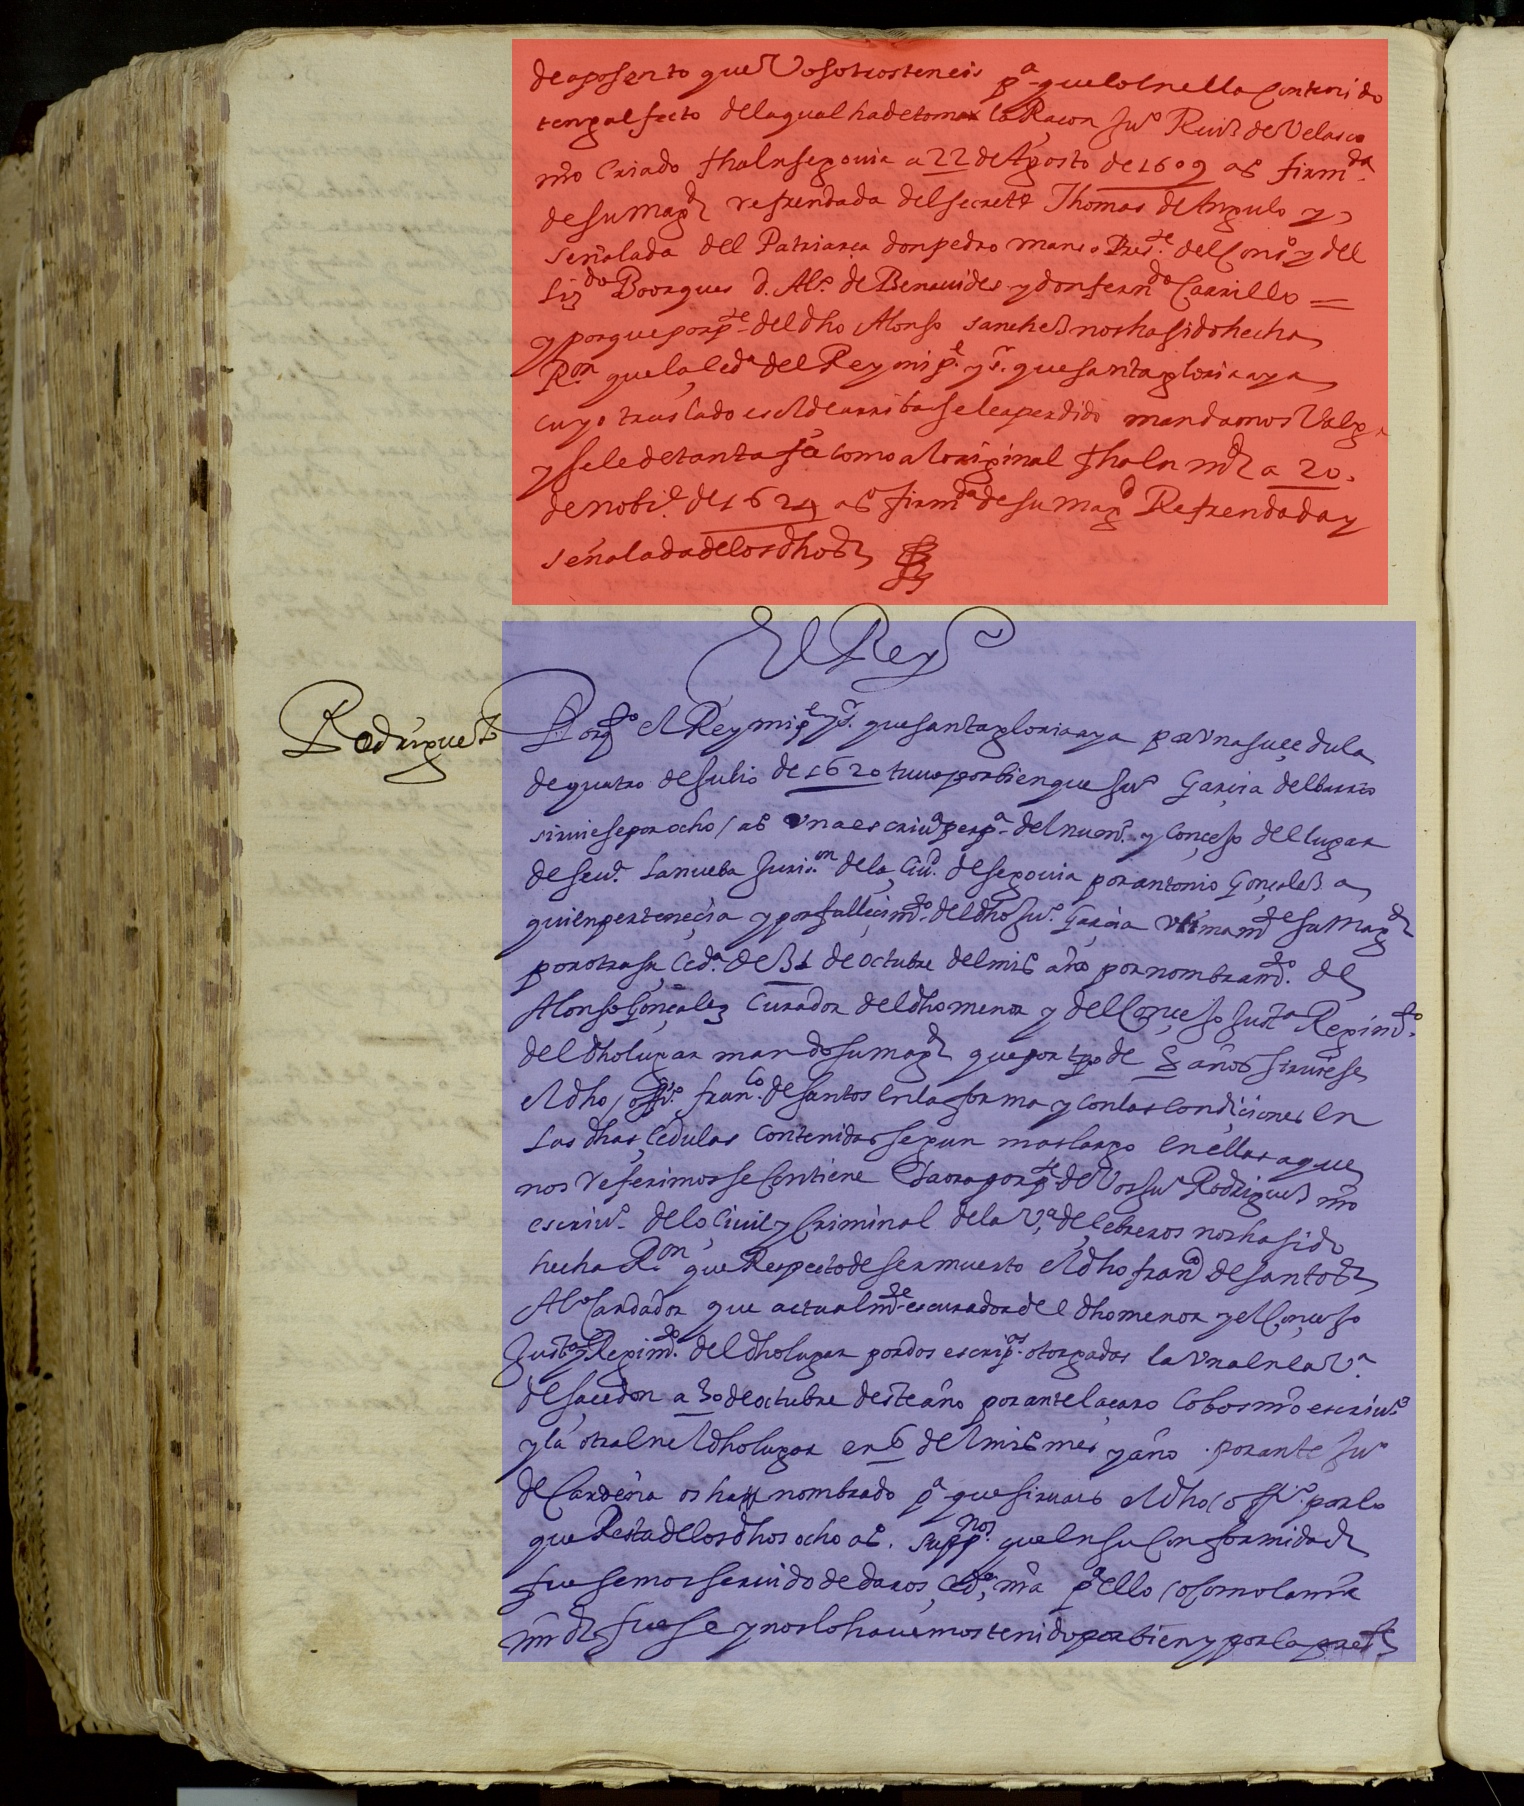 de aposento que Vosotros teneis pª que lo en ella contenido
tenga efecto de la qual ha de tomar la Raçon Juº Ruiz de Velasco
nrō Criado fha en segovia a 22 de Agosto de 1609 as firmda
de su Magd refrendada del secrett Thomas de Angulo y
señalada del Patriarca don pedro manso Preste del Consº y del
Lizdo Boorques d. Alº de Benauides y don ferndo Carrillo =
y porque por pte del dho Alonso sanchez nos ha sido hecha
Ron que la ceda del Rey mi pe y sr que santa gloria aya
cuyo traslado es el de arriba se le a perdido mandamos Valga
y se le de tanta fe como al original fha en md a 20
de nobie de 1624 as firmda de su Magd Refrendada y
señalada de los dhos
El Rey
Rodriguez
Por qto el Rey mi pe y sr que santa gloria aya por una su cedula
de quatro de Julio de 1620 tuuo por bien que Juº Garcia del burro
siruiese por ocho as una escriuª perpª del numº y Conçejo del lugar
de seuª la nueba Jurison de la Ciud de segouia por antonio Gonçalez a
quien perteneçia y por falleçimto del dho Juº Garcia ultimamte su Magd
por otra su Cedª de 31 de octubre del mismo año por nombramto de
Alonso Gonçalez Curador del dho menor y del Conçejo Justª Regimto
del dho lugar mando su magd que por tpo de 8 años siruiese
el dho offiº franco de santos en la forma y con las condiciones en
las dhas Cedulas contenidas segun mas largo en ellas a que
nos referimos se contiene Y aora por pte de Vos Juº Rodriguez nrō
escriuº de lo Ciuil y Criminal de la Vª de Cebreros nos ha sido
hecha Ron que Respecto de ser muerto el dho franco de santos
Alº Candador que actualmte es curador del dho menor y el Conçejo
Justª y Regimto del dho lugar por dos escripas otorgadas la una en la Vª
de sacedon a 30 de octubre deste año por ante laçaro Cobos nrō escriuº
y la otra en el dho lugar en 6 del mismo mes y año por ante Juº
de Cardeña os han nombrado pª que siruais el dho offiº por lo
que Resta de los dhos ocho as. suppnos que en su conformidad
fuesemos seruido de daros Cedª nrā pª ello o como la nrā
mrd fuese y nos lo hauemos tenido por bien y por la preste